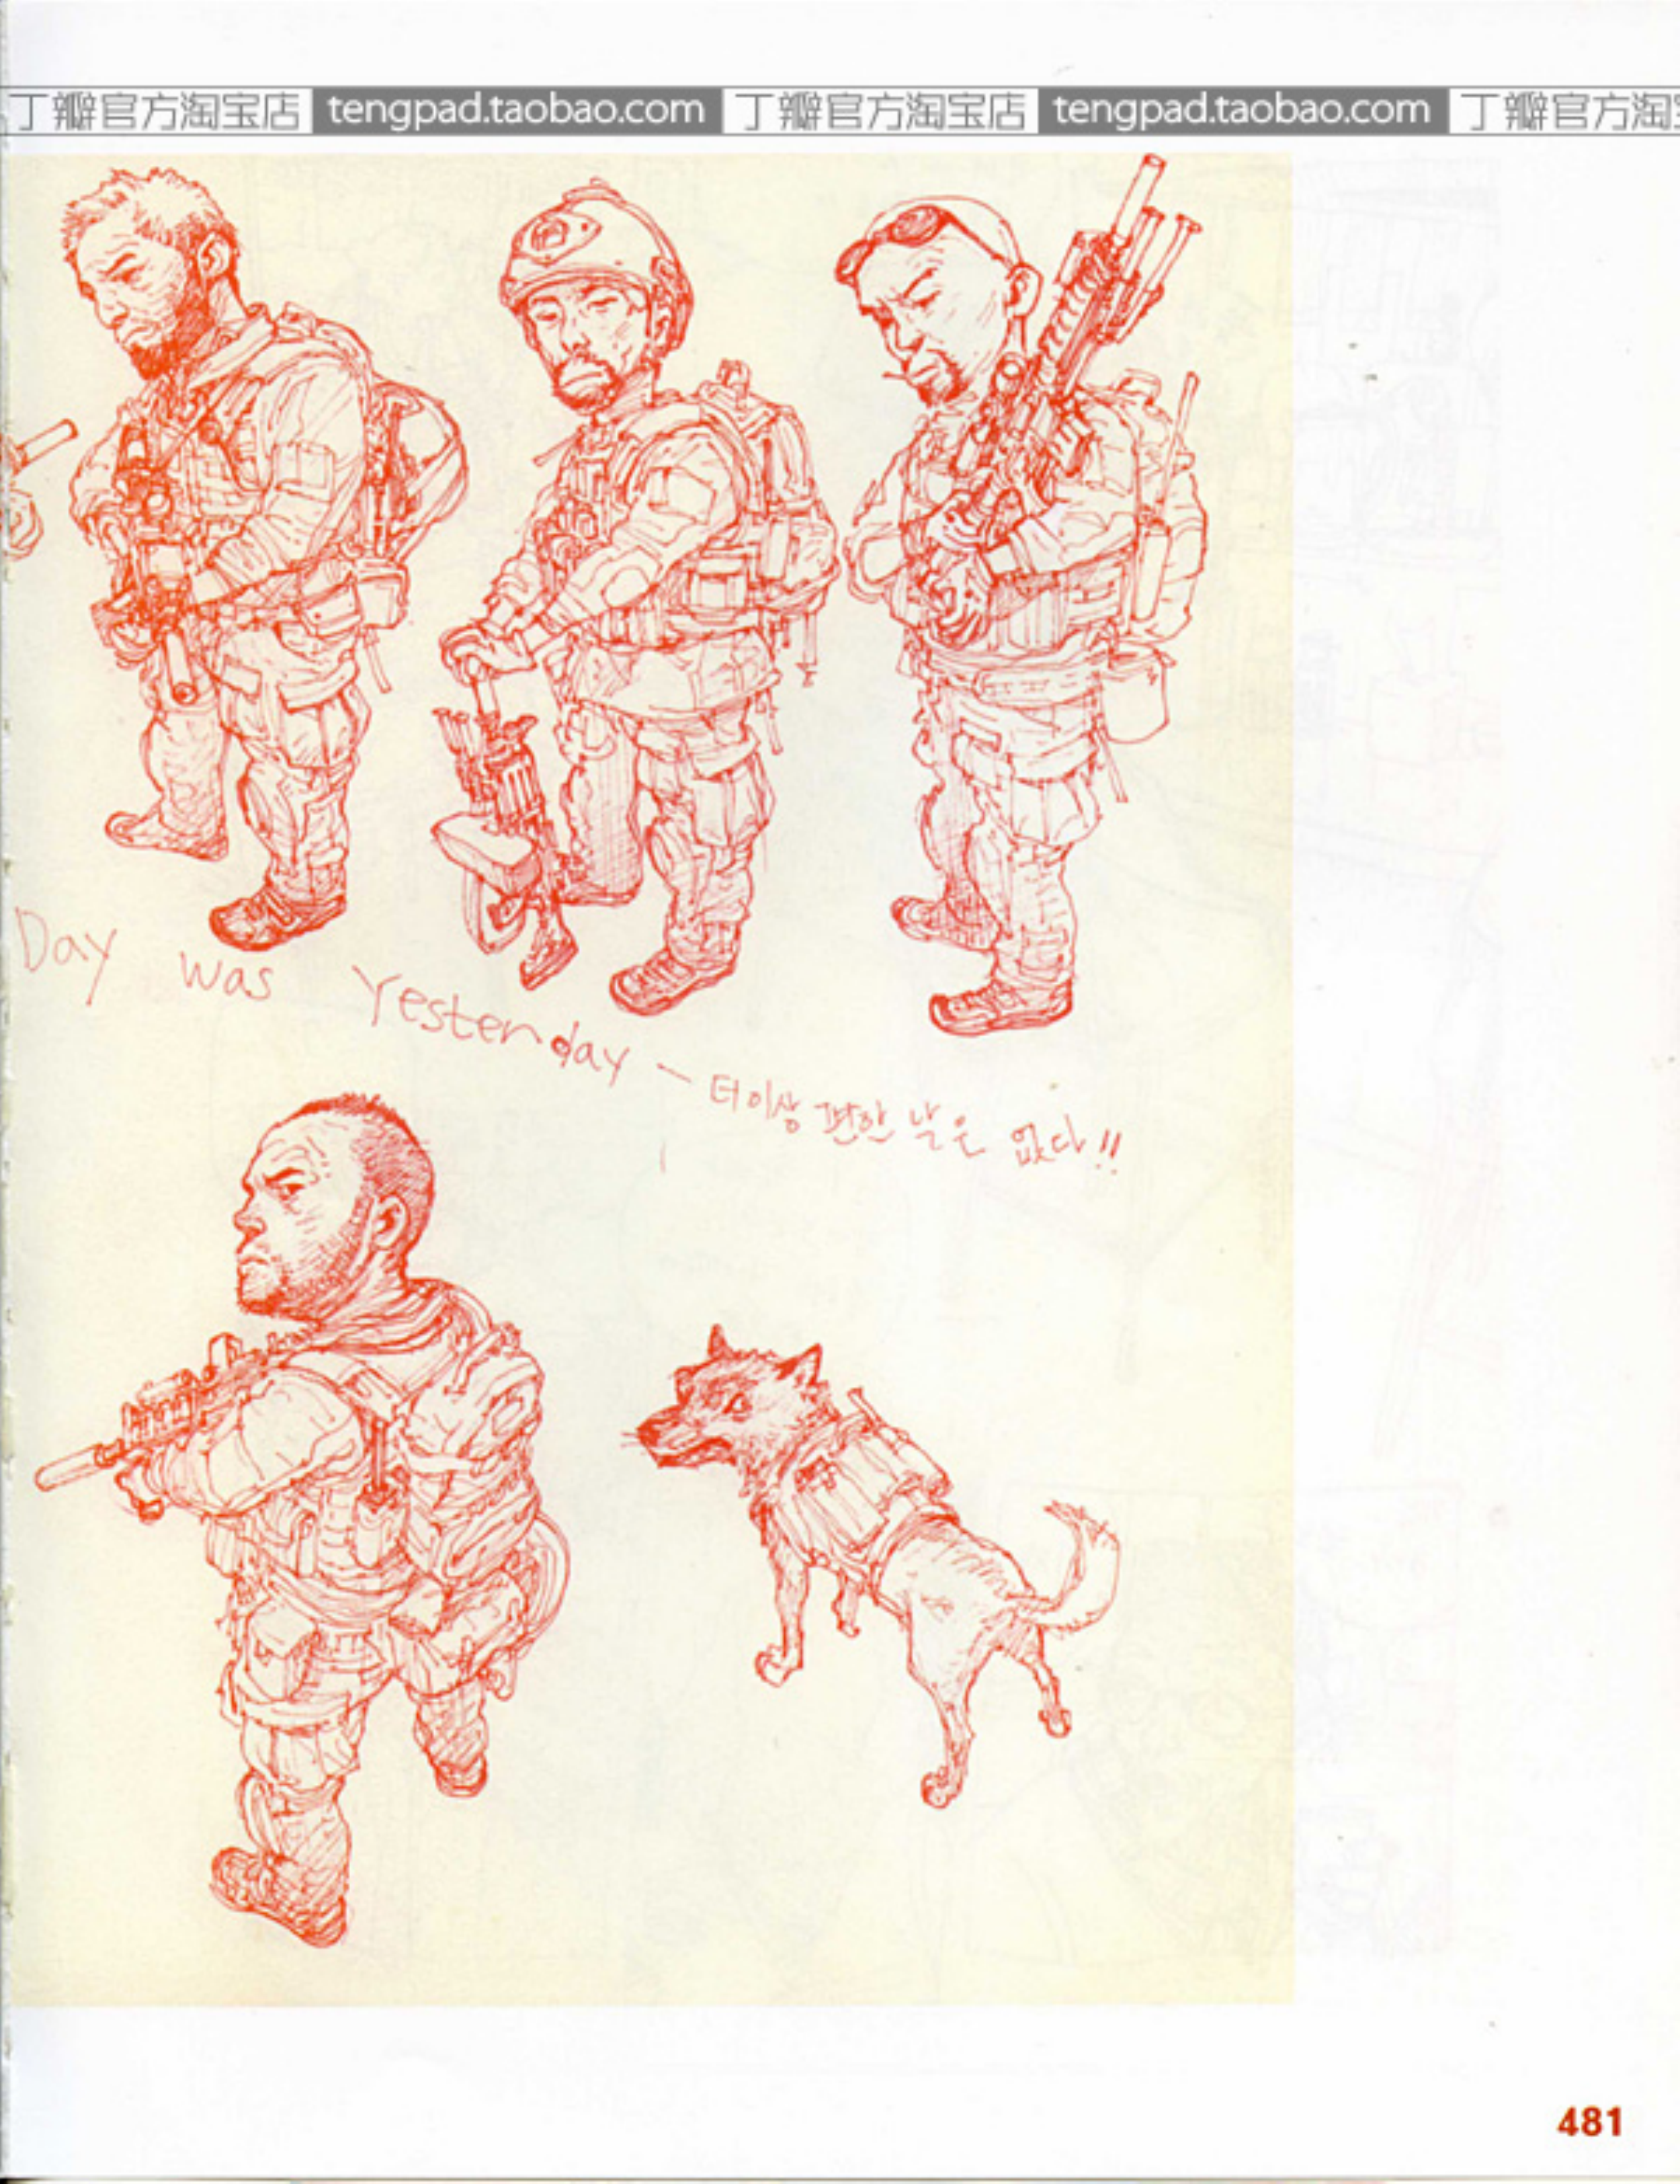 丁瓣官方淘宝店 tengpad.taobao.com 丁瓣官方淘宝店 tengpad.taobao.com 丁瓣官方淘
Day was Yesterday ~ 더이상 편한 날은 없다!!
481